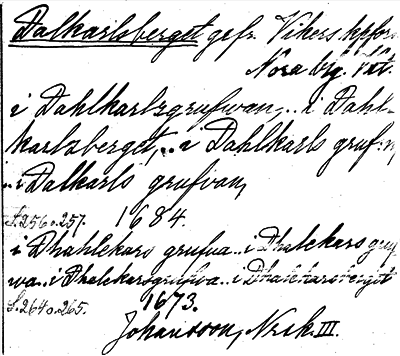 Dalkarlsberget gefr. Vikers kpfors.
Nora brg. Vät.
i Dahlkarlsgrufwan,.. i Dahl-
karlsberget,.. i Dahlkarls gruf:n,
.. i Dalkarls grufvan,
S. 256 o. 257. 1684.
i Dhahlekars grufva.. i Dhalekars gruf
wa.. i Dhalekarsgrufwa.. i Dhalekarsberget
S. 264 o. 265. 1673.
Johansson, Nrsk. III.